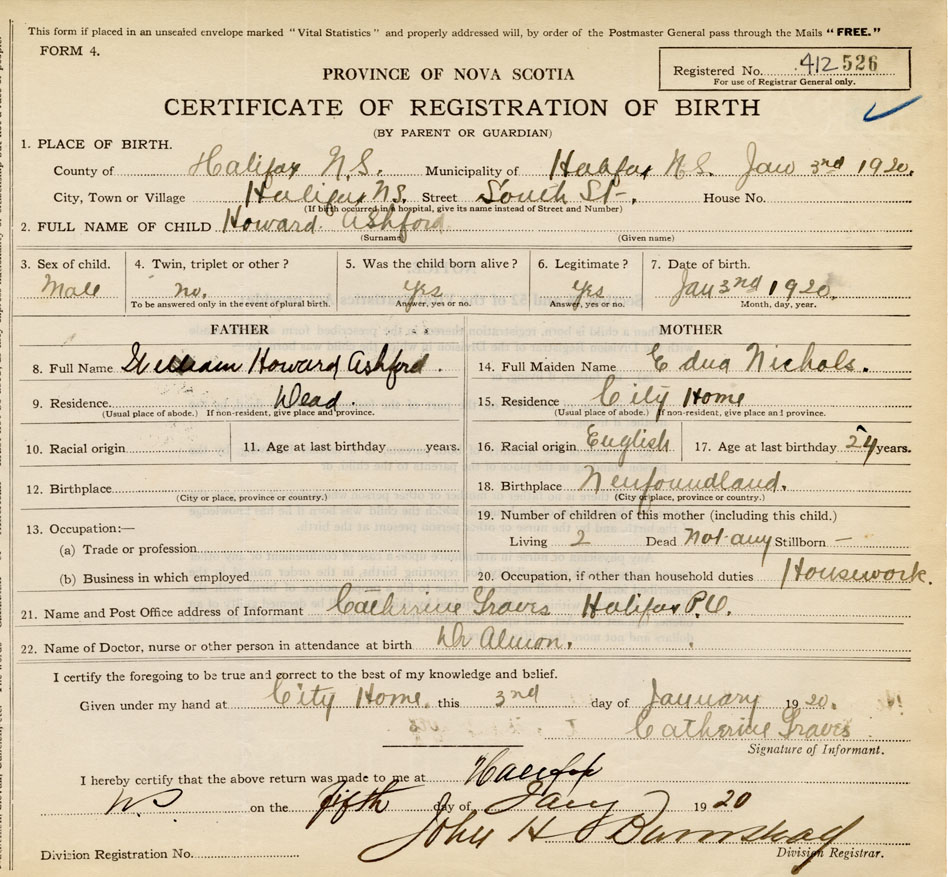 This form if placed in an unsealed envelope marked "Vital Statistics" and properly addressed will, by order of the Postmaster General pass through the Mails "FREE."
FORM 4.
Registered No. 412 526
For use of Registrar General only.
PROVINCE OF NOVA SCOTIA
CERTIFICATE OF REGISTRATION OF BIRTH
(BY PARENT OR GUARDIAN)
1. PLACE OF BIRTH.
County of Halifax N.S. Municipality of Halifax N.S. Jan 3rd 1920.
City, Town or Village Halifax N.S. Street South St. House No.
(If birth occurred in a hospital, give its name instead of Street and Number)
2. FULL NAME OF CHILD Howard Ashford
(Surname) (Given name)
3. Sex of child. 4. Twin, triplet or other? 5. Was the child born alive? 6. Legitimate? 7. Date of birth.
Male no. Yes Yes Jan 3rd 1920.
To be answered only in the event of plural birth. Answer, yes or no. Answer, yes or no. Month, day, year.
FATHER MOTHER
8. Full Name William Howard Ashford. 14. Full Maiden Name Edna Nichols.
9. Residence Dead. 15. Residence City Home
(Usual place of abode.) If non-resident, give place and province. (Usual place of abode.) If non-resident, give place and province.
10. Racial origin 11. Age at last birthday years. 16. Racial origin English 17. Age at last birthday 24 years.
12. Birthplace 18. Birthplace Newfoundland.
(City or place, province or country.) (City or place, province or country.)
13. Occupation:— 19. Number of children of this mother (including this child.)
(a) Trade or profession Living 2 Dead not any Stillborn —
(b) Business in which employed 20. Occupation, if other than household duties Housework.
21. Name and Post Office address of Informant Catherine Graves Halifax P.O.
22. Name of Doctor, nurse or other person in attendance at birth Dr Almon.
I certify the foregoing to be true and correct to the best of my knowledge and belief.
Given under my hand at City Home. this 3rd day of January 1920.
Catherine Graves
Signature of Informant.
I hereby certify that the above return was made to me at Halifax
NS on the fifth day of Jany 1920
John H
Division Registration No. Division Registrar.